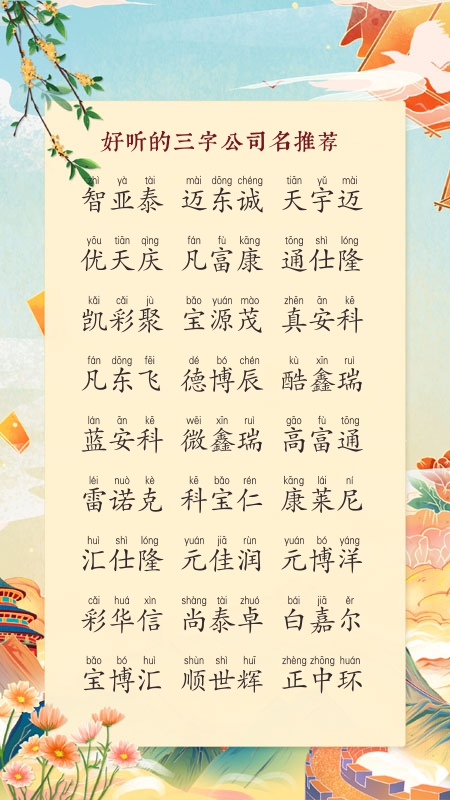 好听的三字公司名推荐
zhì yà tài mài dōng chéng tiān yǔ mài
智亚泰 迈东诚 天宇迈
yōu tiān qìng fán fù kāng tōng shì lóng
优天庆 凡富康 通仕隆
kǎi cǎi jù bǎo yuán mào zhēn ān kē
凯彩聚 宝源茂 真安科
fán dōng fēi dé bó chén kù xīn ruì
凡东飞 德博辰 酷鑫瑞
lán ān kē wēi xīn ruì gāo fù tōng
蓝安科 微鑫瑞 高富通
léi nuò kè kē bǎo rén kāng lái ní
雷诺克 科宝仁 康莱尼
huì shì lóng yuán jiā rùn yuán bó yáng
汇仕隆 元佳润 元博洋
cǎi huá xìn shàng tài zhuó bái jiā ěr
彩华信 尚泰卓 白嘉尔
bǎo bó huì shùn shì huī zhèng zhōng huán
宝博汇 顺世辉 正中环